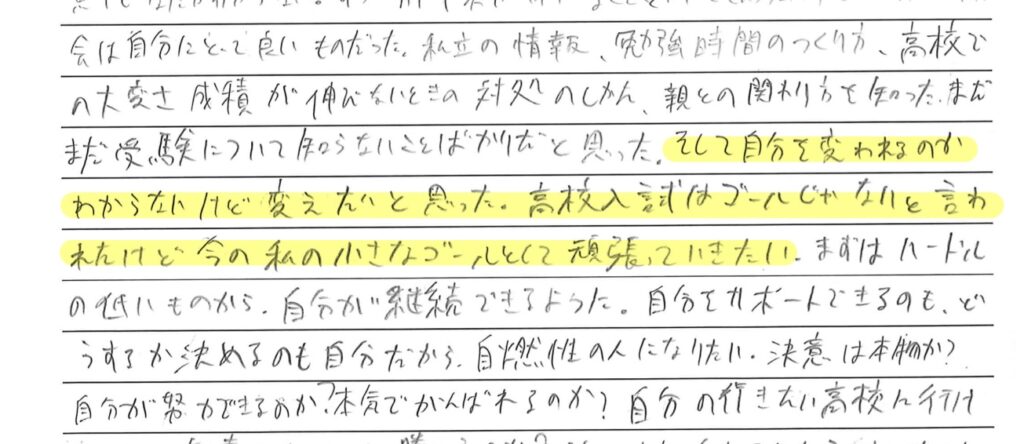 会は自分にとって良いものだった。私立の情報、勉強時間のつくり方、高校で
の大変さ 成績が伸びないときの対処のしかた、親との関わり方を知った。まだ
まだ受験について知らないことばかりだと思った。そして自分を変われるのか
わからないけど変えたいと思った。高校入試はゴールじゃないと言わ
れたけど今の私の小さなゴールとして頑張っていきたい。まずはハードル
の低いものから、自分が継続できるように。自分をサポートできるのも、ど
うするか決めるのも自分だから、自燃性の人になりたい。決意は本物か?
自分が努力できるのか?本気でがんばれるのか?自分の行きたい高校に行け